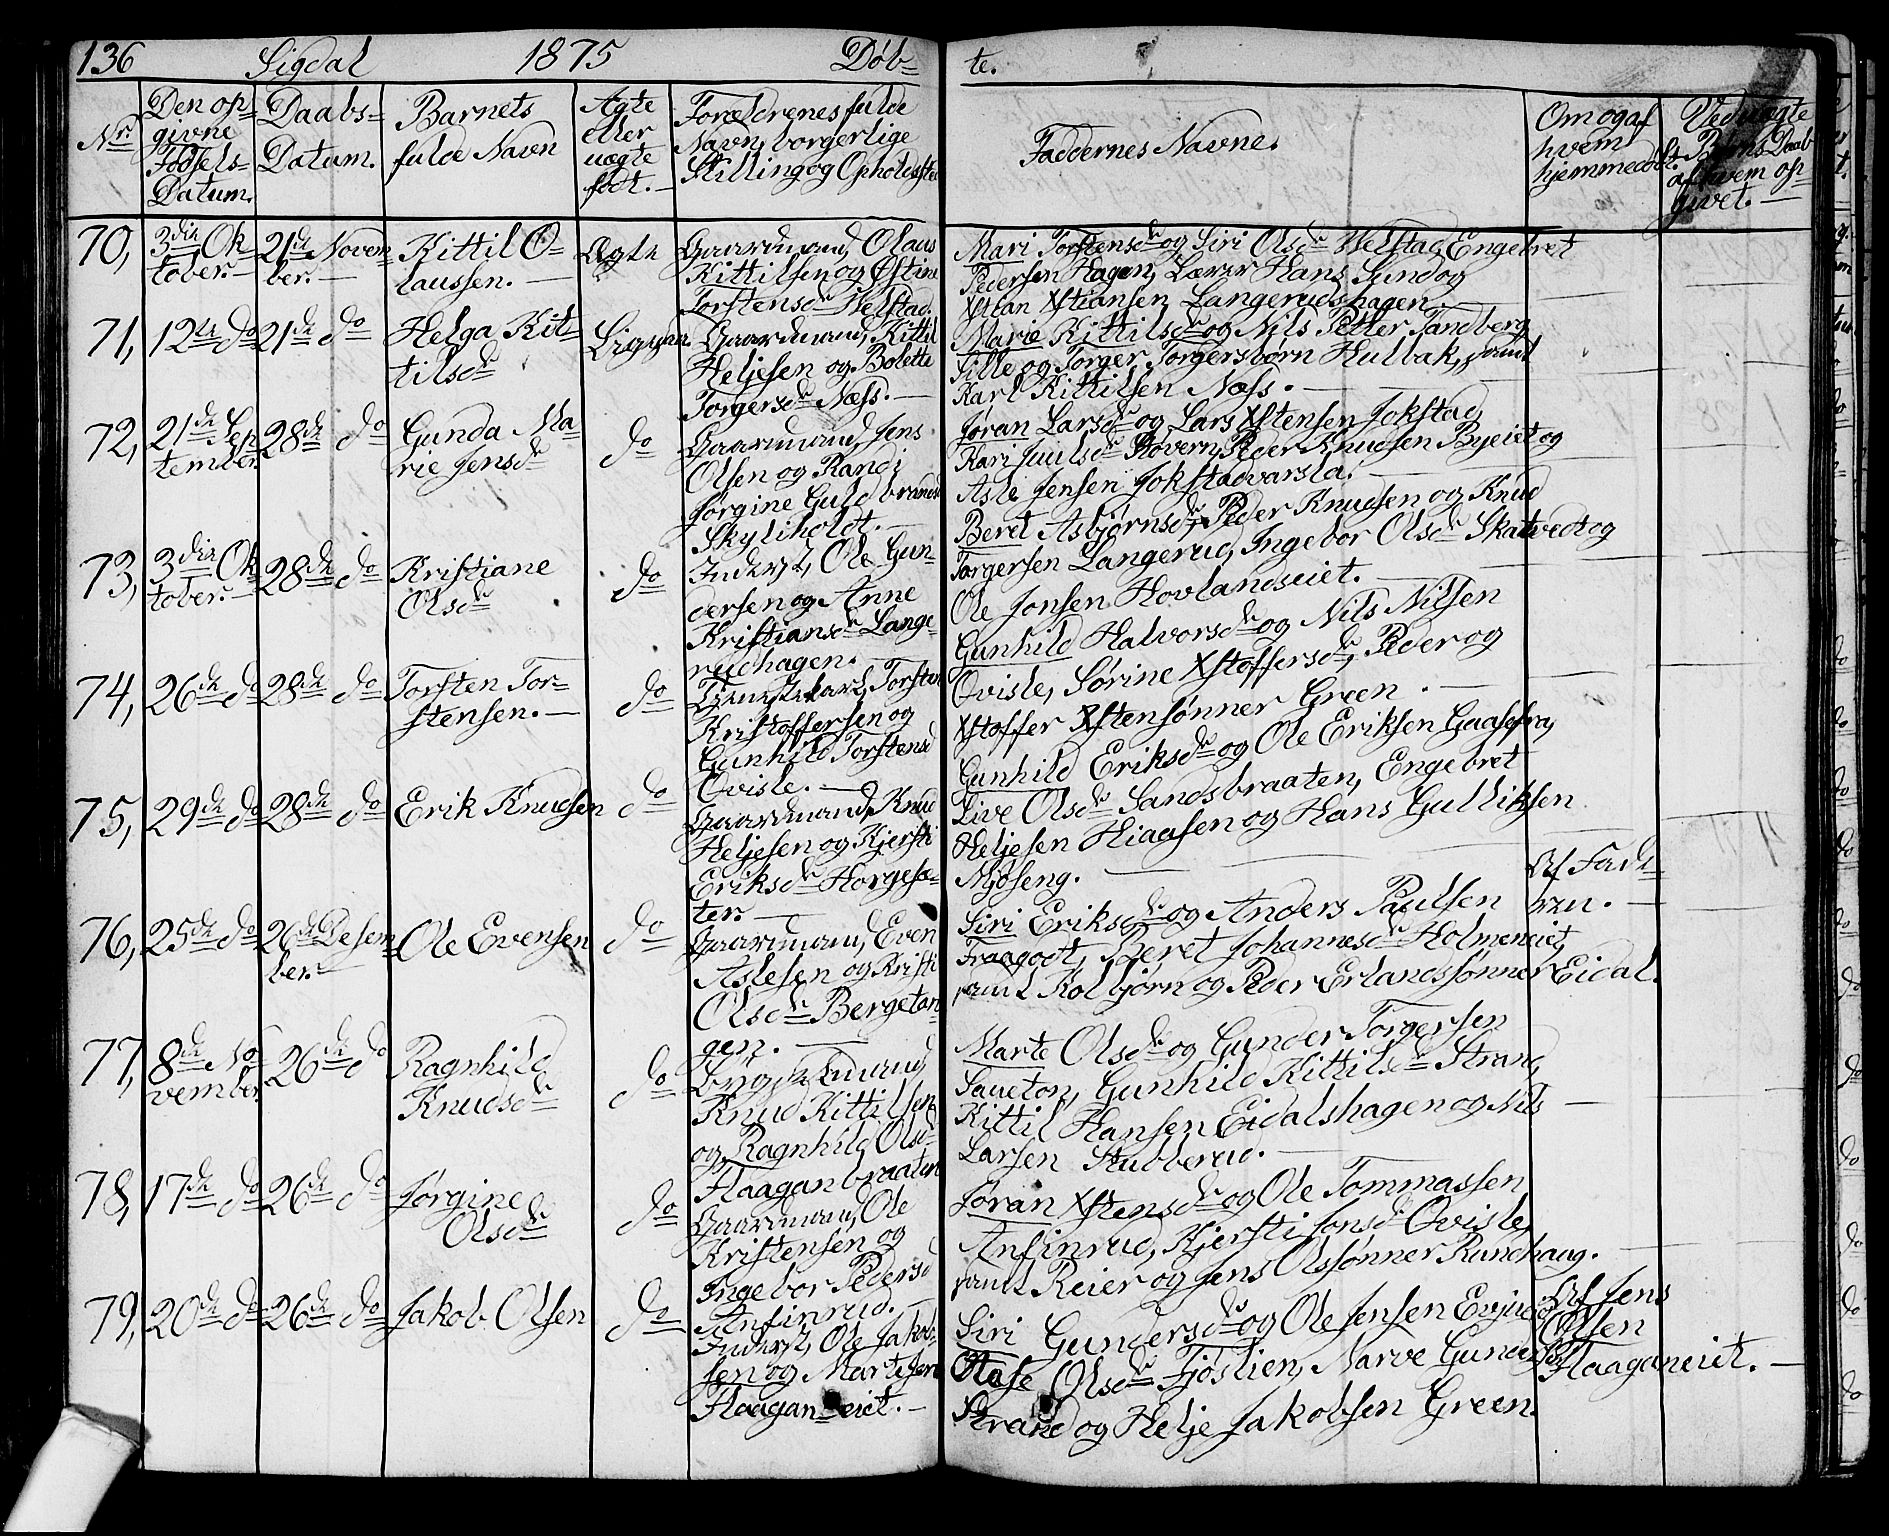 136 Sigdal 1875 Døb= te.
Nr.
Den op=
givne
Fødsels=
Datum.
Daabs=
Datum.
Barnets
fulde Navn
Ægte
eller
uægte
født.
Forældrenes fulde
Navn, borgerlige
Stilling og Opholdssted
Faddernes Navne.
Om og af
hvem
hjemmedøbt.
Ved uægte
Børns Daab
af hvem op=
givet.
70, 3die Ok=
tober.
21de Novem=
ber.
Kittil O=
laussen.
Ægte
Gaardmand, Olaus
Kittilsen og Østine
Torstensdr Welstad.
Mari Torstensdr og Siri Olsdr Welstad, Engebret
Pedersen Hagen, Lærer Hans Lund og
Xstian Xstiansen Langerudshagen.
71, 12te do 21de do
Helga Kit=
tilsdr
Gaardmand, Kittil
Heljesen og Bolette
Torgersdr Næss.
Marie Kittilsdr og Nils Petter Tandberg
Sille og Torger Torgersbørn Hulbak, samt
Karl Kittilsen Næss.
72, 21de Sep
tember
28de do
Gunda Ma=
rie Jensdr
do
Gaardmand, Jens
Olsen og Randi
Jørgine Guldbrands
Skyliholdt.
Jøran Larsdr og Lars Xstensen Jokstad,
Kari Juulsdr Hovern, Peder Knudsen Byeiet og
Asle Jensen Jokstadvarsla.
73, 3die Ok=
tober.
28de do
Kristiane
Olsdr
do
Inderst, Ole Gun=
dersen og Anne
Kristiansdr Lange=
rudhagen.
Beret Asbjørnsdr, Peder Knudsen og Knud
Torgersen Langerud, Ingebor Olsdr Skatvedt og
Ole Jonsen Hovlandseiet.
74, 26de do 28de do
Torsten Tor=
stensen.
do
Tjenestekarl, Torsten
Kristoffersen og
Gunhild Torstensd
Qvisle.
Gunhild Halvorsdr og Nils Nilsen
Qvisle, Sørine Xstoffersdr, Peder og
Xstoffer Xstensønner Green.
75, 29de do 28de do
Erik Knudsen
do
Gaardmand, Knud
Heljesen og Kjersti
Eriksdr Horgesæ=
ter.
Gunhild Eriksdr og Ole Eriksen Gaasefra,
Live Olsdr Sandsbraaten, Engebret
Heljesen Hiaasen og Hans Gulliksen
Mjøseng.
76, 25de do 26de Desem=
ber.
Ole Evensen
do
Gaardmand, Even
Aslesen og Kristi
Olsdr Bergetan=
gen.
Siri Eriksdr og Anders Paulsen
Fraagodt, Beret Johannesdr Holmeneiet,
samt Kolbjørn og Peder Erlandssønner Eidal.
Af Fade=
ren.
77, 8de No
vember
26de do
Ragnhild
Knudsdr
do
Knud Kittilsen
og Ragnhild Olsd
Haaganbraaten
Marte Olsdr og Gunder Torgersen
Saueton, Gunhild Kittilsdr Strand,
Kittil Hansen Eidalshagen og Nils
Larsen Stubberud.
78, 17de do 26de do
Jørgine
Olsdr
do
Gaardmand, Ole
Kristensen og
Ingebor Pedersd
Anfinrud.
Jøran Xstensdr og Ole Tommassen
Anfinrud, Kjersti Jonsdr Qvisle,
samt Reier og Jens Olssønner Rundhaug.
79, 20de do 26de do
Jakob Olsen
do
Inderst, Ole Jakob=
sen og Marte Jens
Haagan=eiet.
Siri Gundersdr og Ole Jensen Evju,
Olsdr Fjøslien, Narve Gunders
Strand og Helje Jakobsen Green.
Af Jens
Olsen
Haaganeiet.